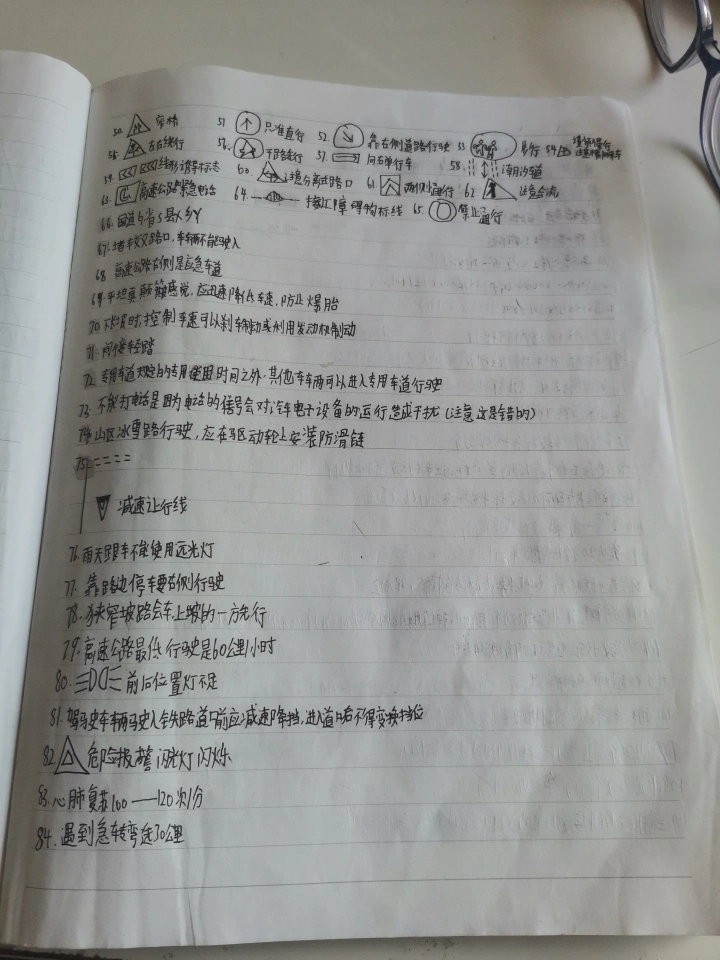 50. 窄桥 51. 只准直行 52. 靠右侧道路行驶 53. 易行 54. 堤坝慢行
55. 左右绕行 56. 干路先行 57. 向右单行车 58. 潮汐车道
59. 线形诱导标志 60. 注意分离式路口 61. 两侧通行 62. 注意合流
63. 高速公路紧急电话 64. 接近障碍物标线 65. 禁止通行
66. 国道G 省S 县X 乡Y
67. 堵车交叉路口,车辆不能驶入
68. 高速公路右侧是应急车道
69. 平坦真颠簸感觉,应迅速降低车速,防止爆胎
70. 下坡时,控制车速可以刹车制动或利用发动机制动
71. 间接轻踏
72. 专用车道规定的专用使用时间之外,其他车车辆可以进入专用车道行驶
73. 不能打电话是因为电话的信号会对汽车电子设备的运行造成干扰(注意这是错的)
74. 山区冰雪路行驶,应在驱动轮上安装防滑链
75.
减速让行线
76. 雨天跟车不能使用远光灯
77. 靠路边停车要右侧行驶
78. 狭窄坡路会车上坡的一方先行
79. 高速公路最低行驶是60公里/小时
80. 前后位置灯不足
81. 驾驶车辆驶入铁路道口前应减速降挡,进入道口后不得变换挡位
82. 危险报警闪光灯闪烁
83. 心肺复苏100——120次/分
84. 遇到急转弯选30公里